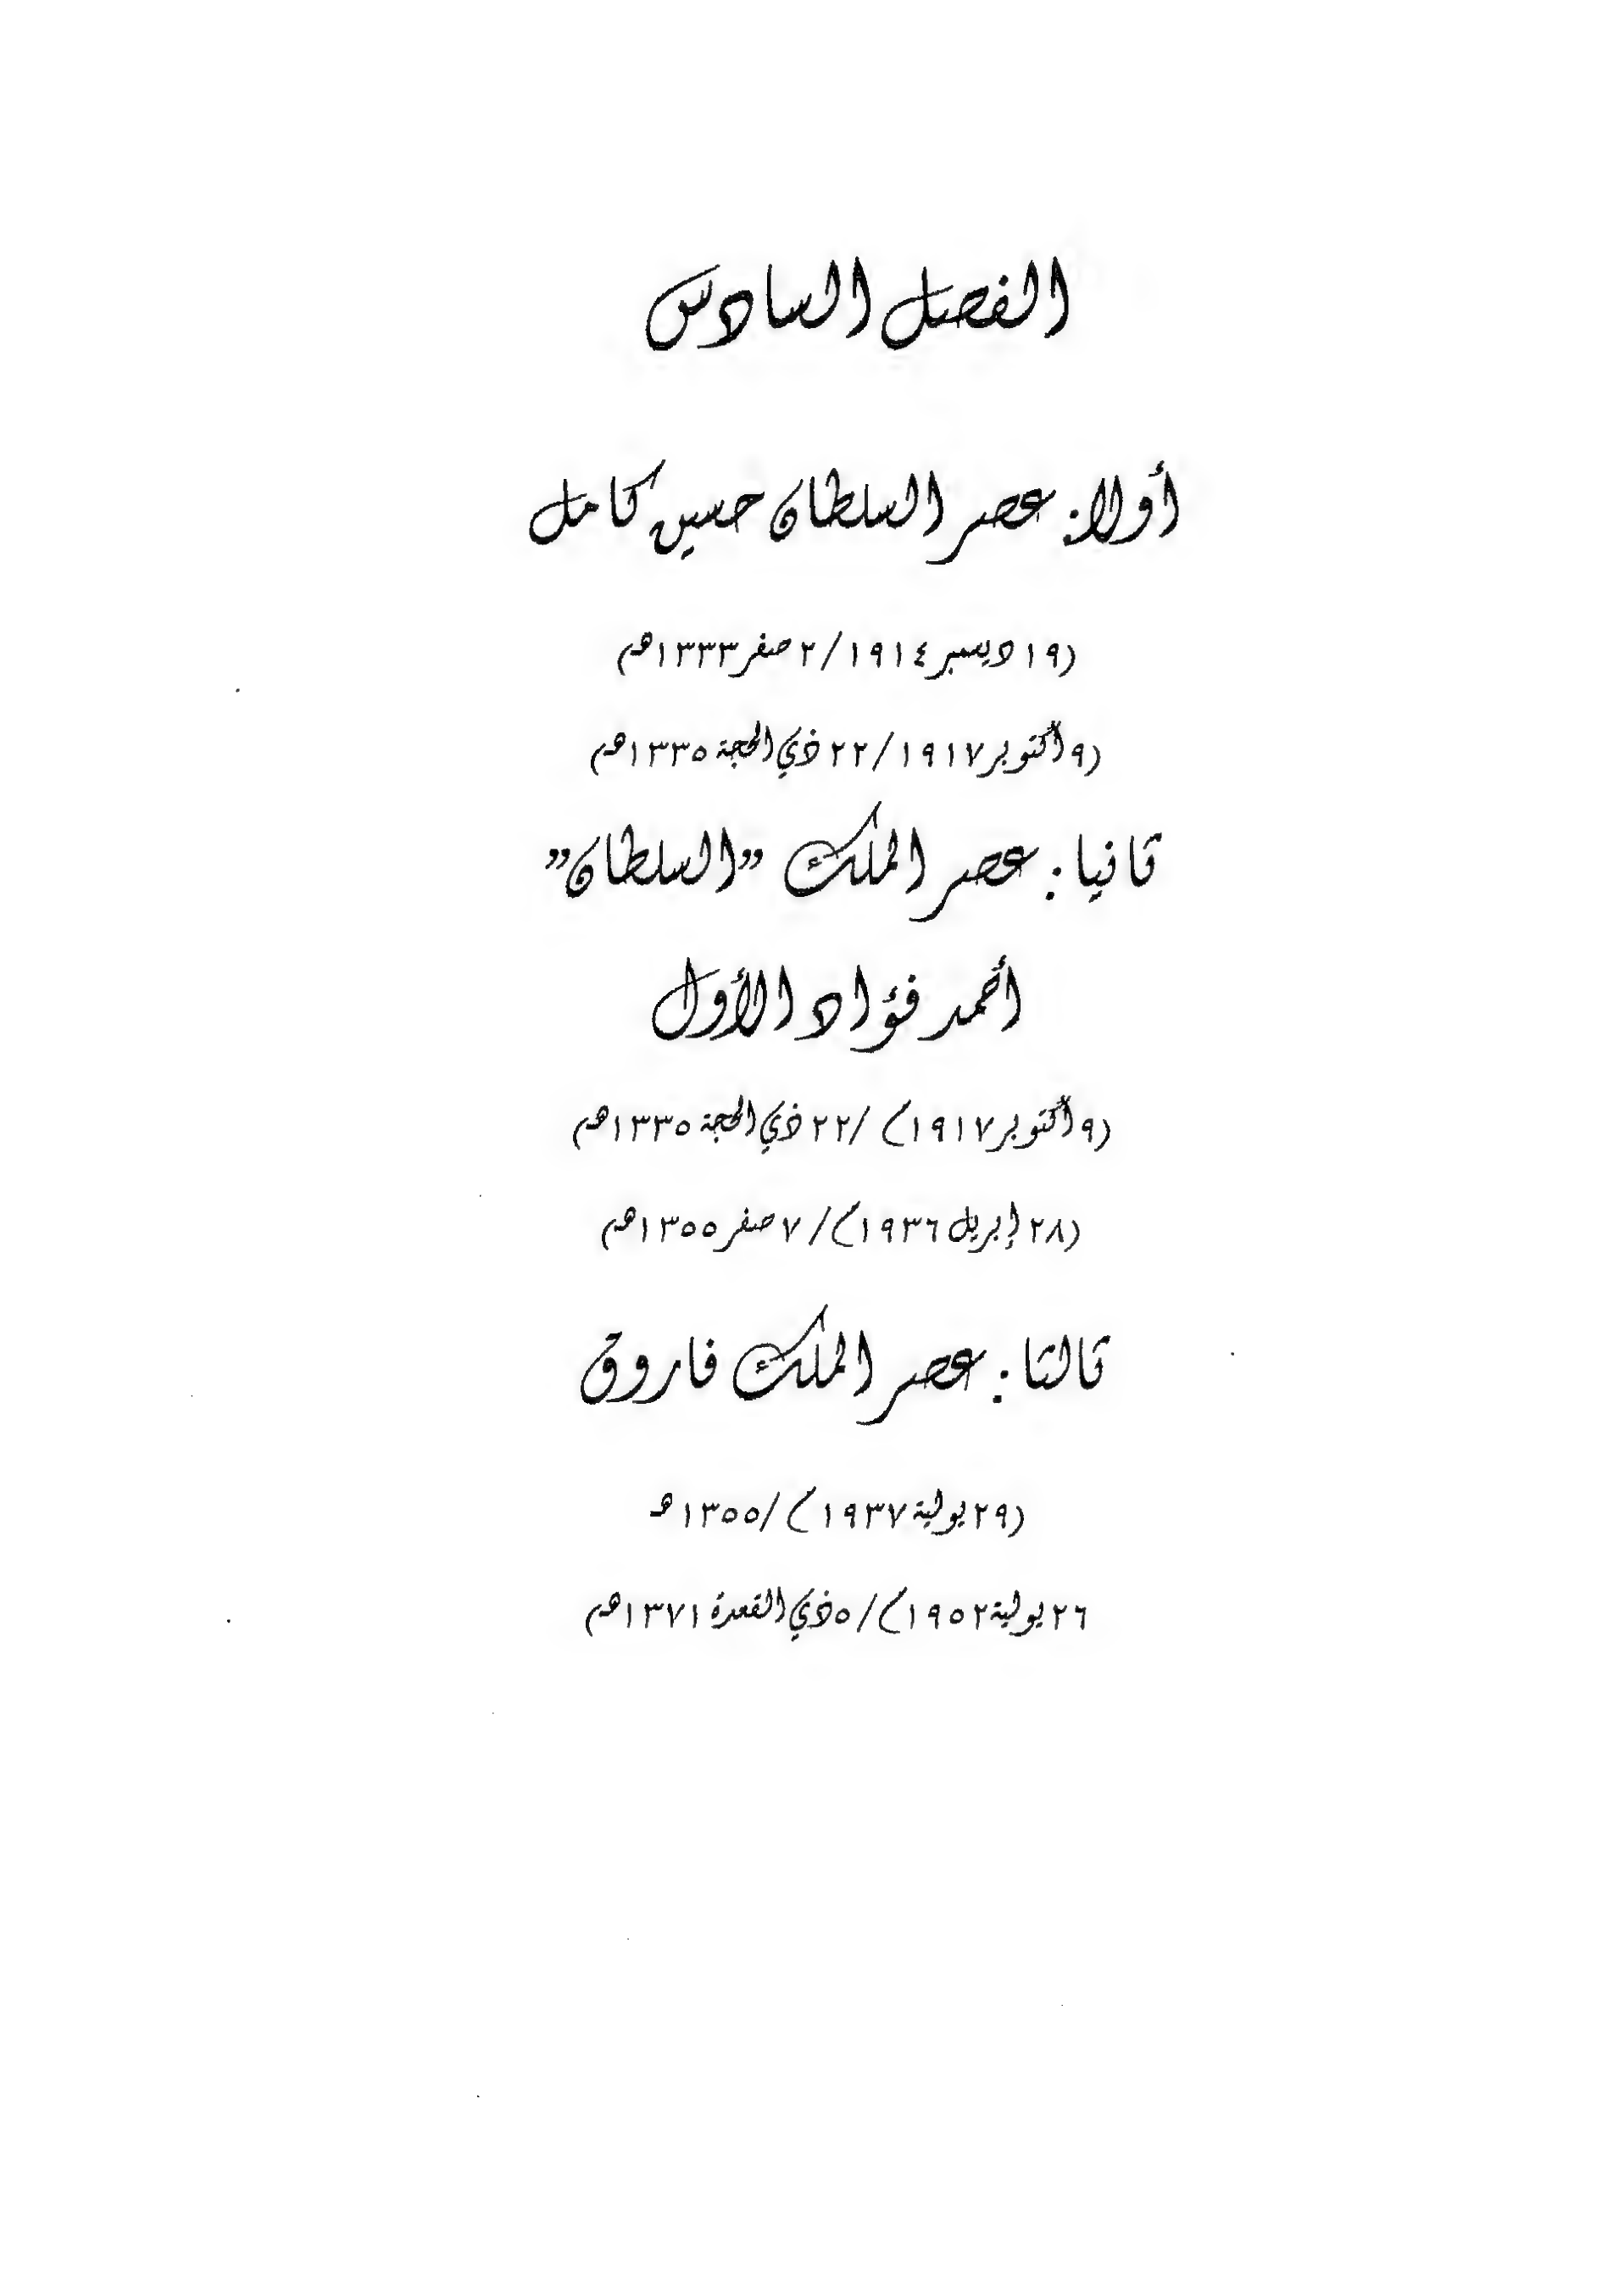 الفصل السادس
أولا: عصر السلطان حسين كامل
(١٩ ديسمبر ١٩١٤/ ٢ صفر ١٣٣٣هـ)
(٩ أكتوبر ١٩١٧/ ٢٢ ذي الحجة ١٣٣٥هـ)
ثانيا: عصر الملك "السلطان"
أحمد فؤاد الأول
(٩ أكتوبر ١٩١٧م/ ٢٢ ذي الحجة ١٣٣٥هـ)
(٢٨ إبريل ١٩٣٦م/ ٧ صفر ١٣٥٥هـ)
ثالثا: عصر الملك فاروق
(٢٩ يولية ١٩٣٧م/ ١٣٥٥هـ
٢٦ يولية ١٩٥٢م/ ٥ ذي القعدة ١٣٧١هـ)